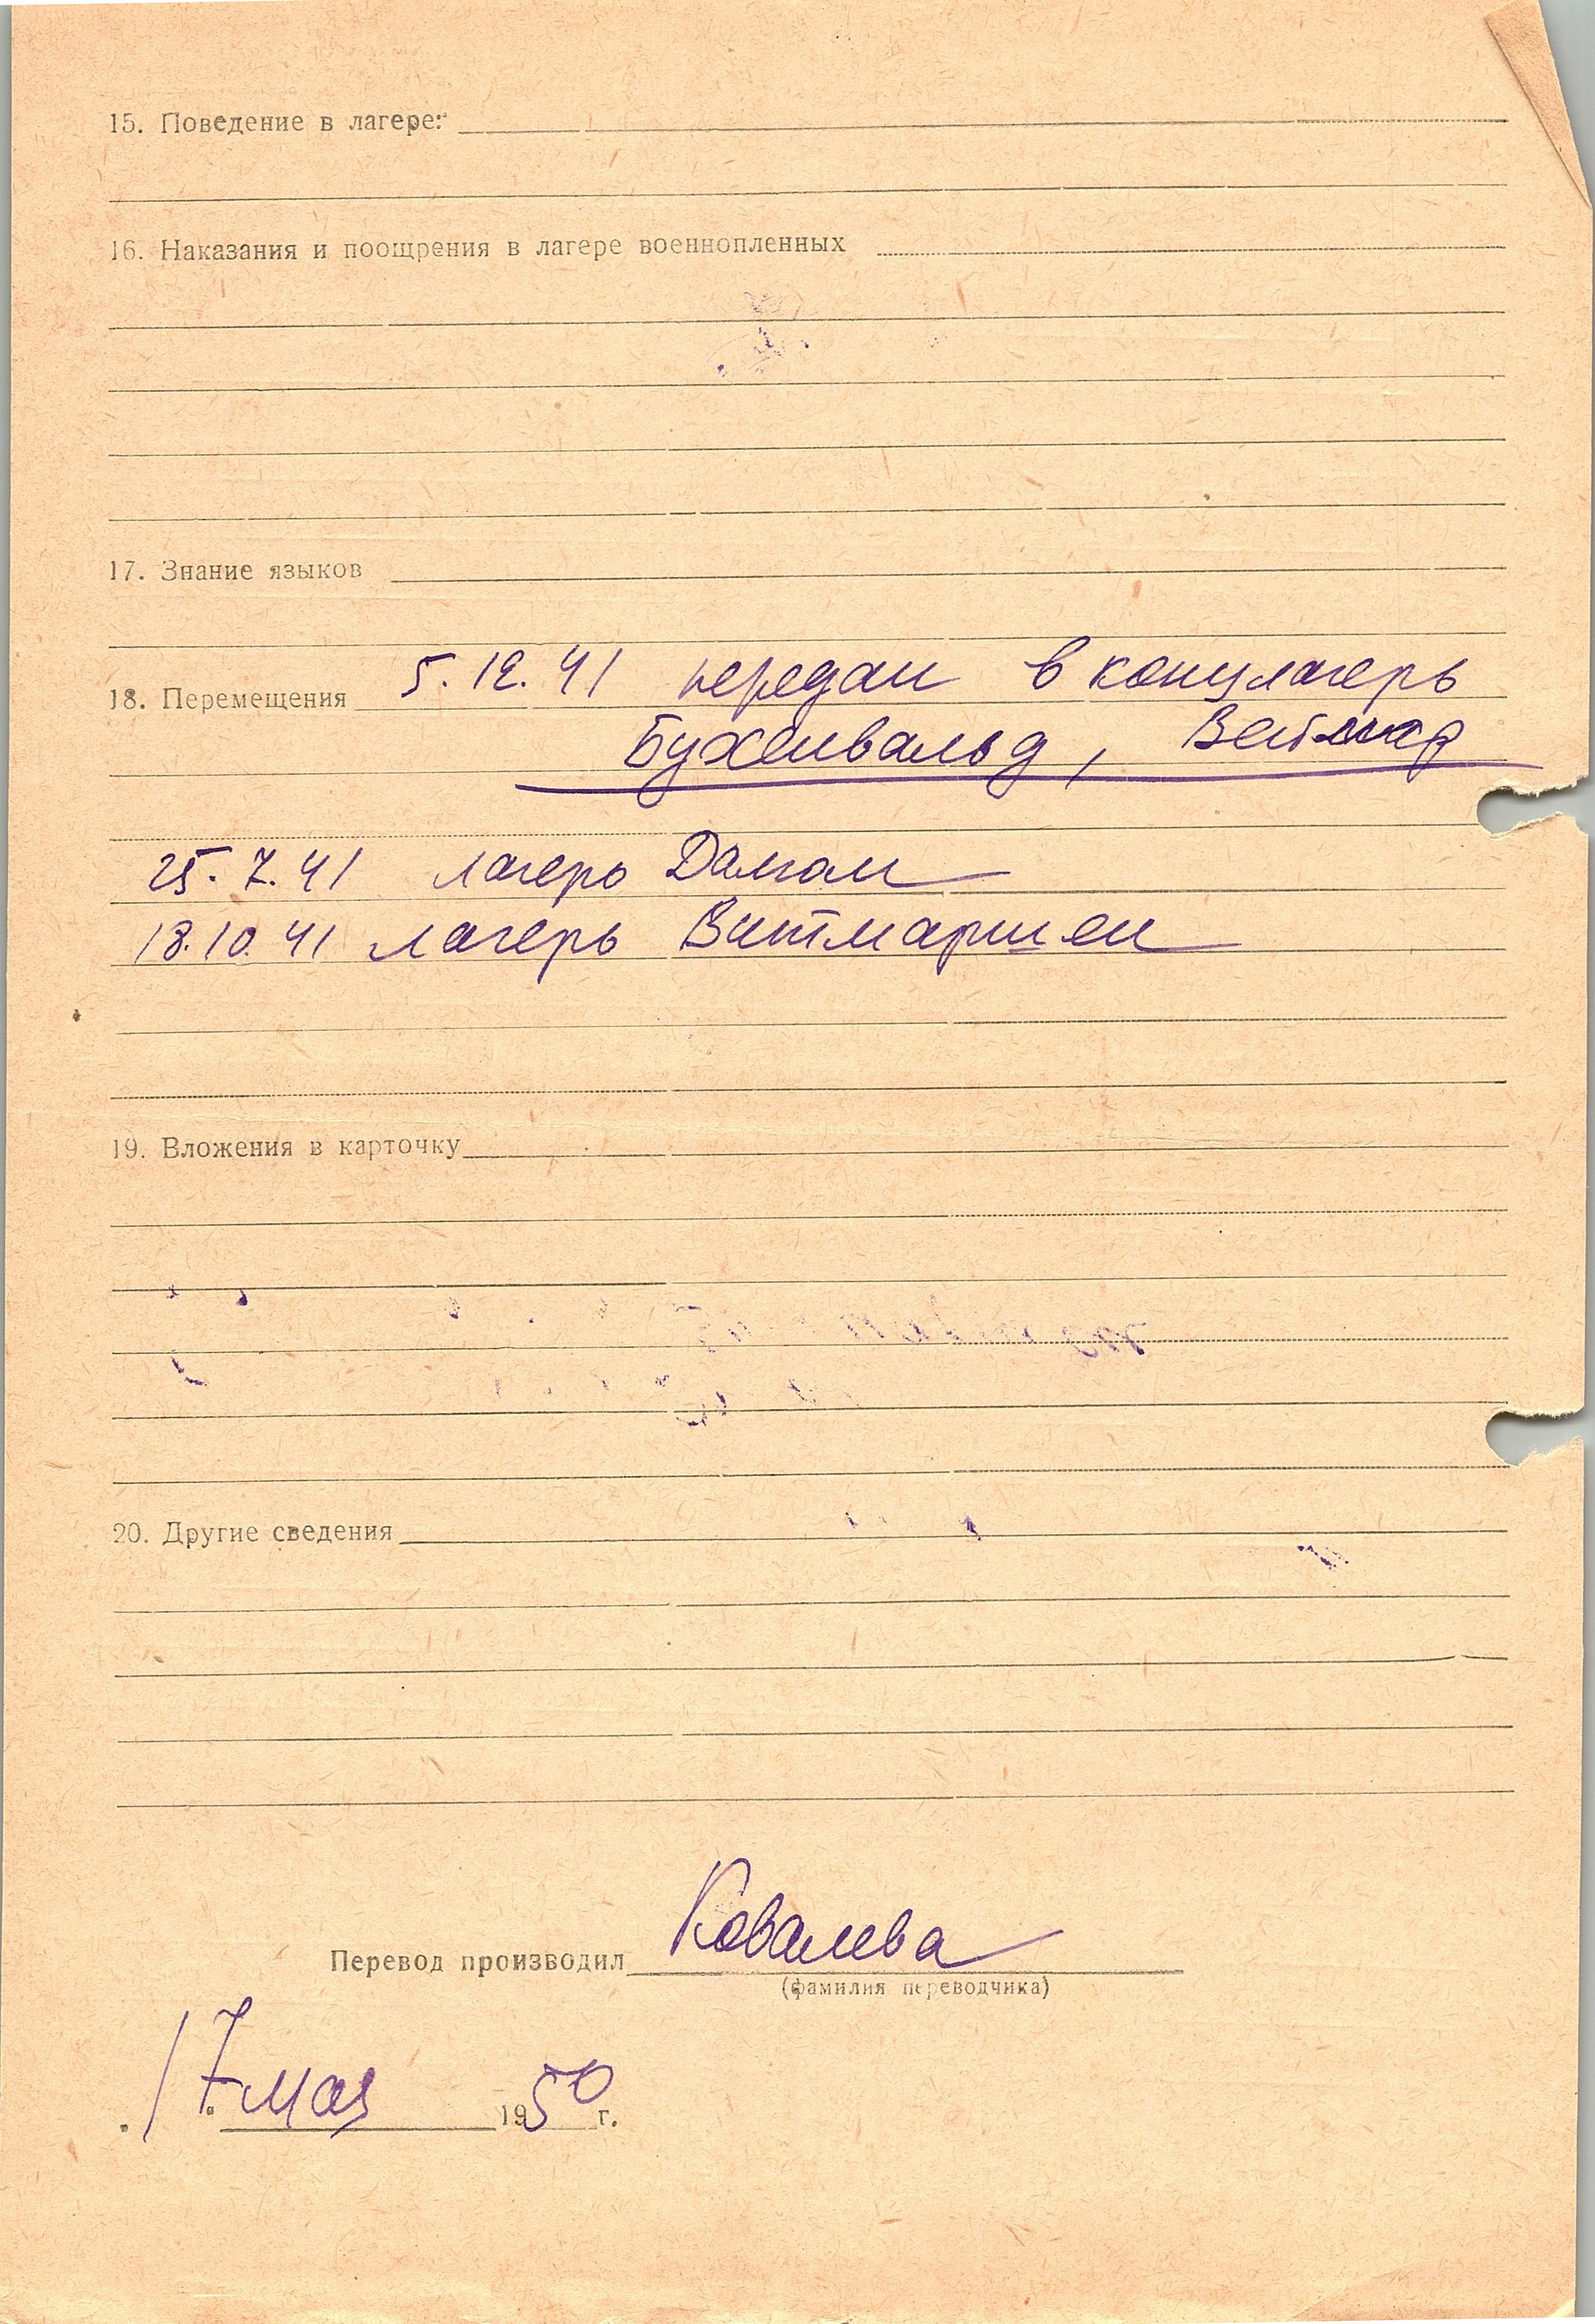 15. Поведение в лагере:
16. Наказания и поощрения в лагере военнопленных
17. Знание языков
18. Перемещения 5.12.41 передан в концлагерь
Бухенвальд, Веймар
25.7.41 лагерь Далюм
18.10.41 лагерь Витмаршен
19. Вложения в карточку
20. Другие сведения
Перевод производил Ковалева
(фамилия переводчика)
17 мая 1950 г.